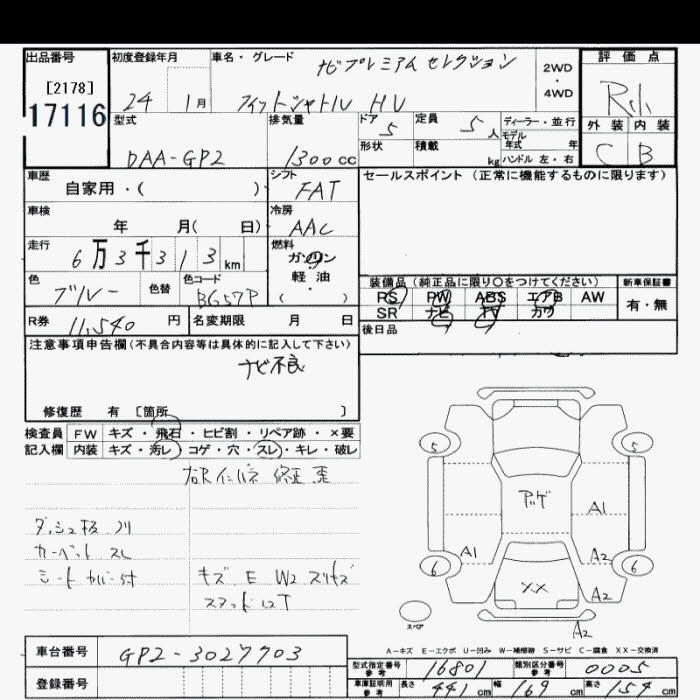 出品番号
[2178]
17116
初度登録年月
24 1月
車名・グレード
ナビプレミアムセレクション
フィットシャトル HV
2WD
・
4WD
評価点
外装 内装
C B
型式
DAA-GP2
排気量
1300cc
ドア 5
定員 5人
ディーラー・並行
モデル
年式 年
形状
積載 kg
ハンドル 左・右
車歴
自家用・( )
シフト
FAT
車検
年 月( 日)
冷房
AAC
走行
6万3千313km
燃料
ガソリン
軽・油
( )
色
ブルー
色替
色コード
BG57P
R券 11,540 円
名変期限 月 日
セールスポイント(正常に機能するものに限ります)
装備品(純正品に限り○をつけてください)
RS PW ABS エアB AW
SR ナビ TV カワ
新車保証書
有・無
後日品
注意事項申告欄(不具合内容等は具体的に記入して下さい)
ナビ不良
修復歴 有 〔箇所 〕
検査員 FW キズ・飛石・ヒビ割・リペア跡・×要
記入欄 内装 キズ・汚レ・コゲ・穴・スレ・キレ・破レ
ダッシュ板 ノリ
カーペット スレ
シートカバー付
キズ E W2 スリキズ
スタッドレスT
5 5
アゲ
A1
A1
A2
6 6
XX
A2
スペア
A2
A-キズ E-エクボ U-凹み W-補修跡 S-サビ C-腐食 XX-交換済
車台番号 GP2-3027703
登録番号
型式指定番号
参考
16801
類別区分番号
参考
0005
車庫証明用
参考
長さ 441cm 幅 169cm 高さ 154cm